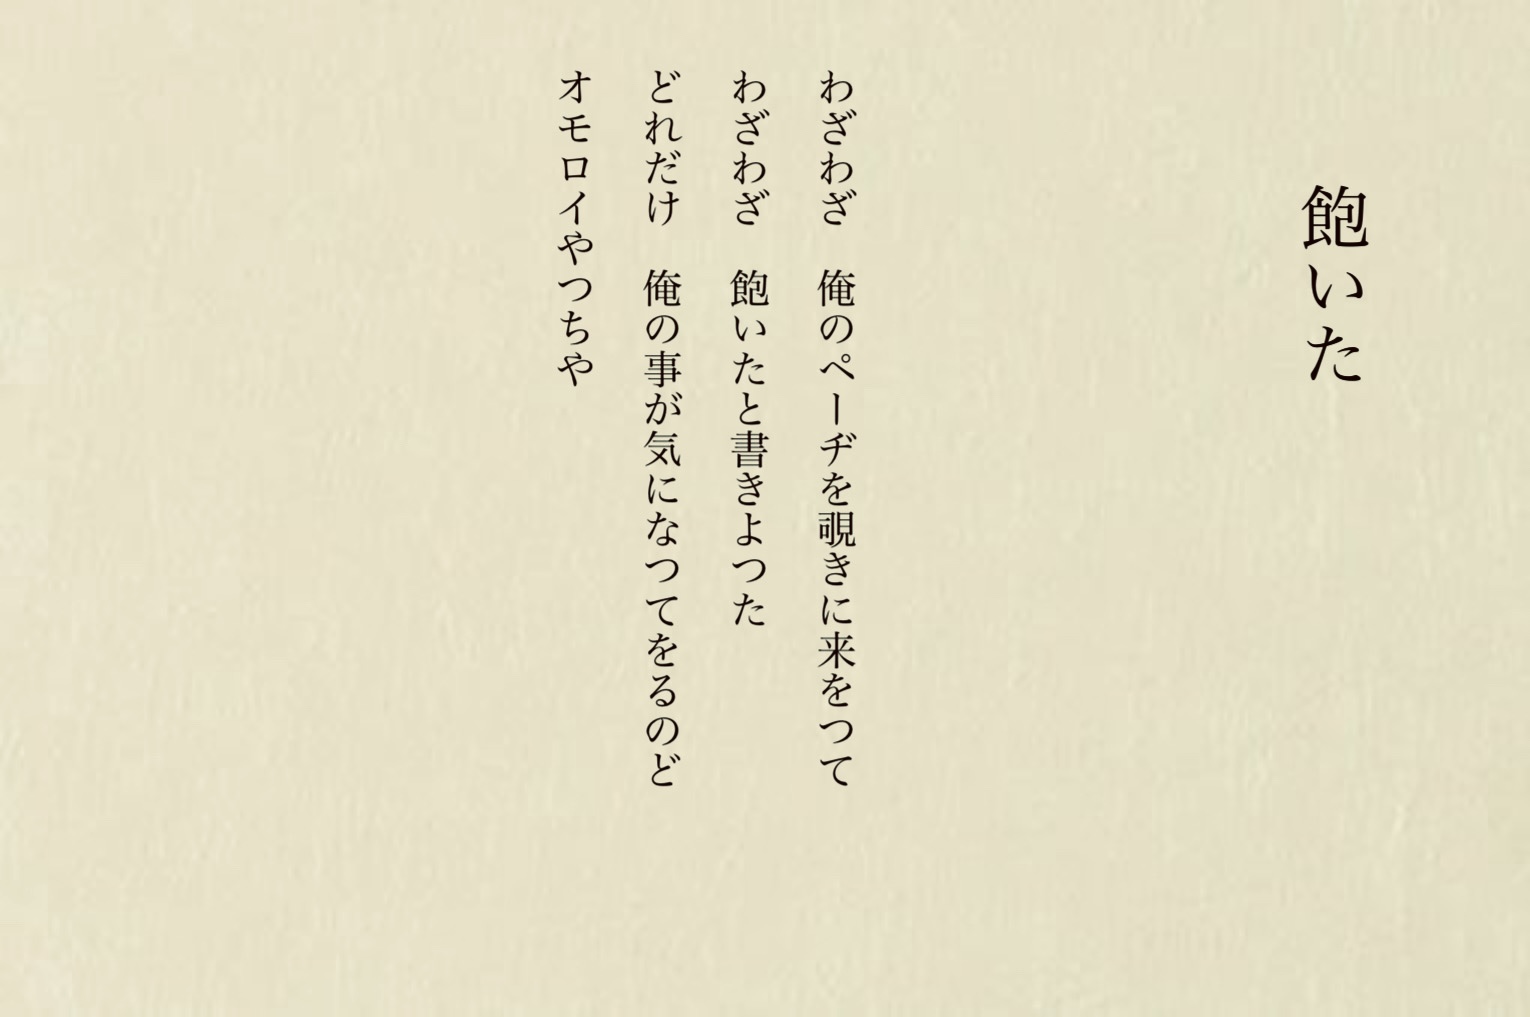 飽いた
わざわざ　俺のペーヂを覗きに来をつて
わざわざ　飽いたと書きよつた
どれだけ　俺の事が気になつてをるのど
オモロイやつちや